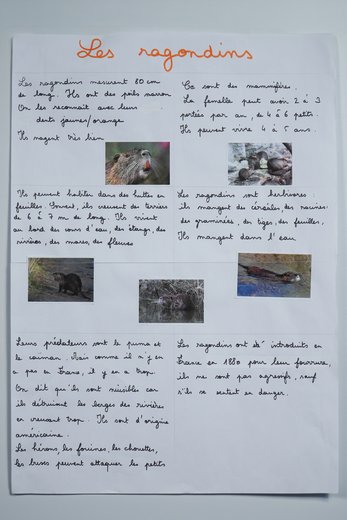 Les ragondins
Les ragondins mesurent 80 cm
de long. Ils ont des poils marron
On les reconnait avec leurs
dents jaunes/orange
Ils nagent très bien
Ce sont des mammifères.
La femelle peut avoir 2 à 3
portées par an, de 4 à 6 petits.
Ils peuvent vivre 4 à 5 ans.
Ils peuvent habiter dans des huttes en
feuilles. Souvent, ils creusent des terriers
de 6 à 7 m de long. Ils vivent
au bord des cours d'eau, des étangs, des
rivières, des mares, des fleuves
Les ragondins sont herbivores :
ils mangent des céréales, des racines,
des graminées, des tiges, des feuilles,
Ils mangent dans l'eau
Leurs prédateurs sont le puma et
le caïman. Mais comme il n'y en
a pas en France, il y en a trop.
On dit qu'ils sont nuisibles car
ils détruisent les berges des rivières
en creusant trop. Ils sont d'origine
américaine.
Les hérons, les fouines, les chouettes,
les buses peuvent attaquer les petits
Les ragondins ont été introduits en
France en 1880 pour leur fourrure,
ils ne sont pas agressifs, sauf
s'ils se sentent en danger.